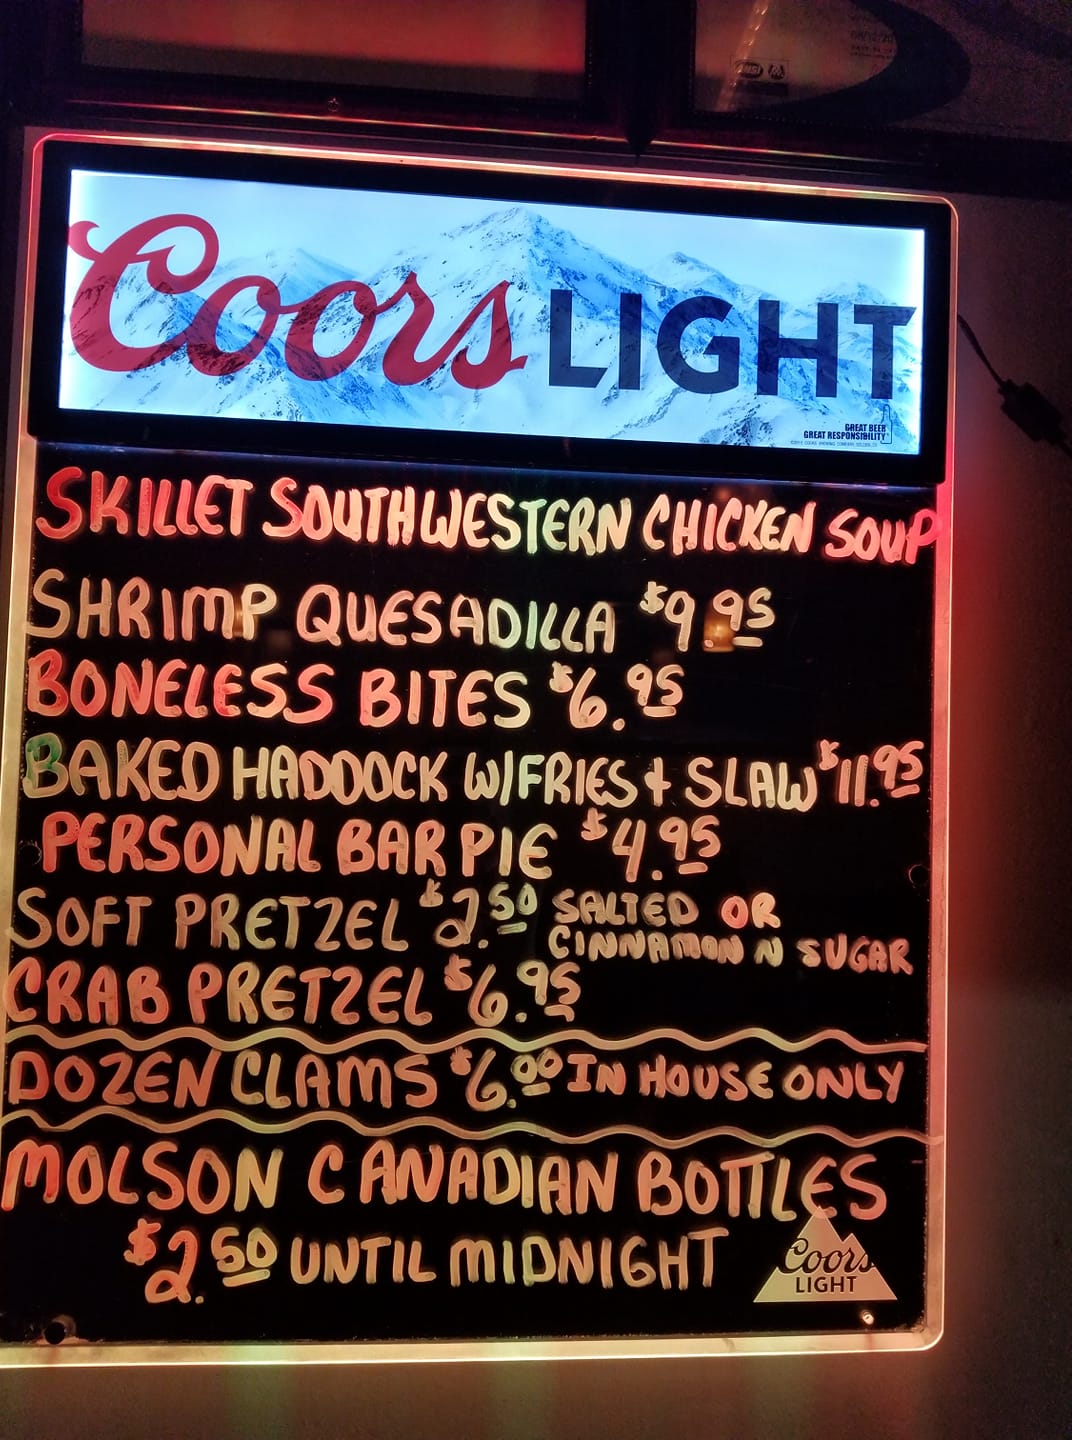 Coors LIGHT
GREAT BEER
GREAT RESPONSIBILITY
SKILLET SOUTHWESTERN CHICKEN SOUP
SHRIMP QUESADILLA $9.95
BONELESS BITES $6.95
BAKED HADDOCK W/FRIES + SLAW $11.95
PERSONAL BAR PIE $4.95
SOFT PRETZEL $2.50 SALTED OR
CINNAMON N SUGAR
CRAB PRETZEL $6.95
DOZEN CLAMS $6.00 IN HOUSE ONLY
MOLSON CANADIAN BOTTLES
$2.50 UNTIL MIDNIGHT
Coors
LIGHT